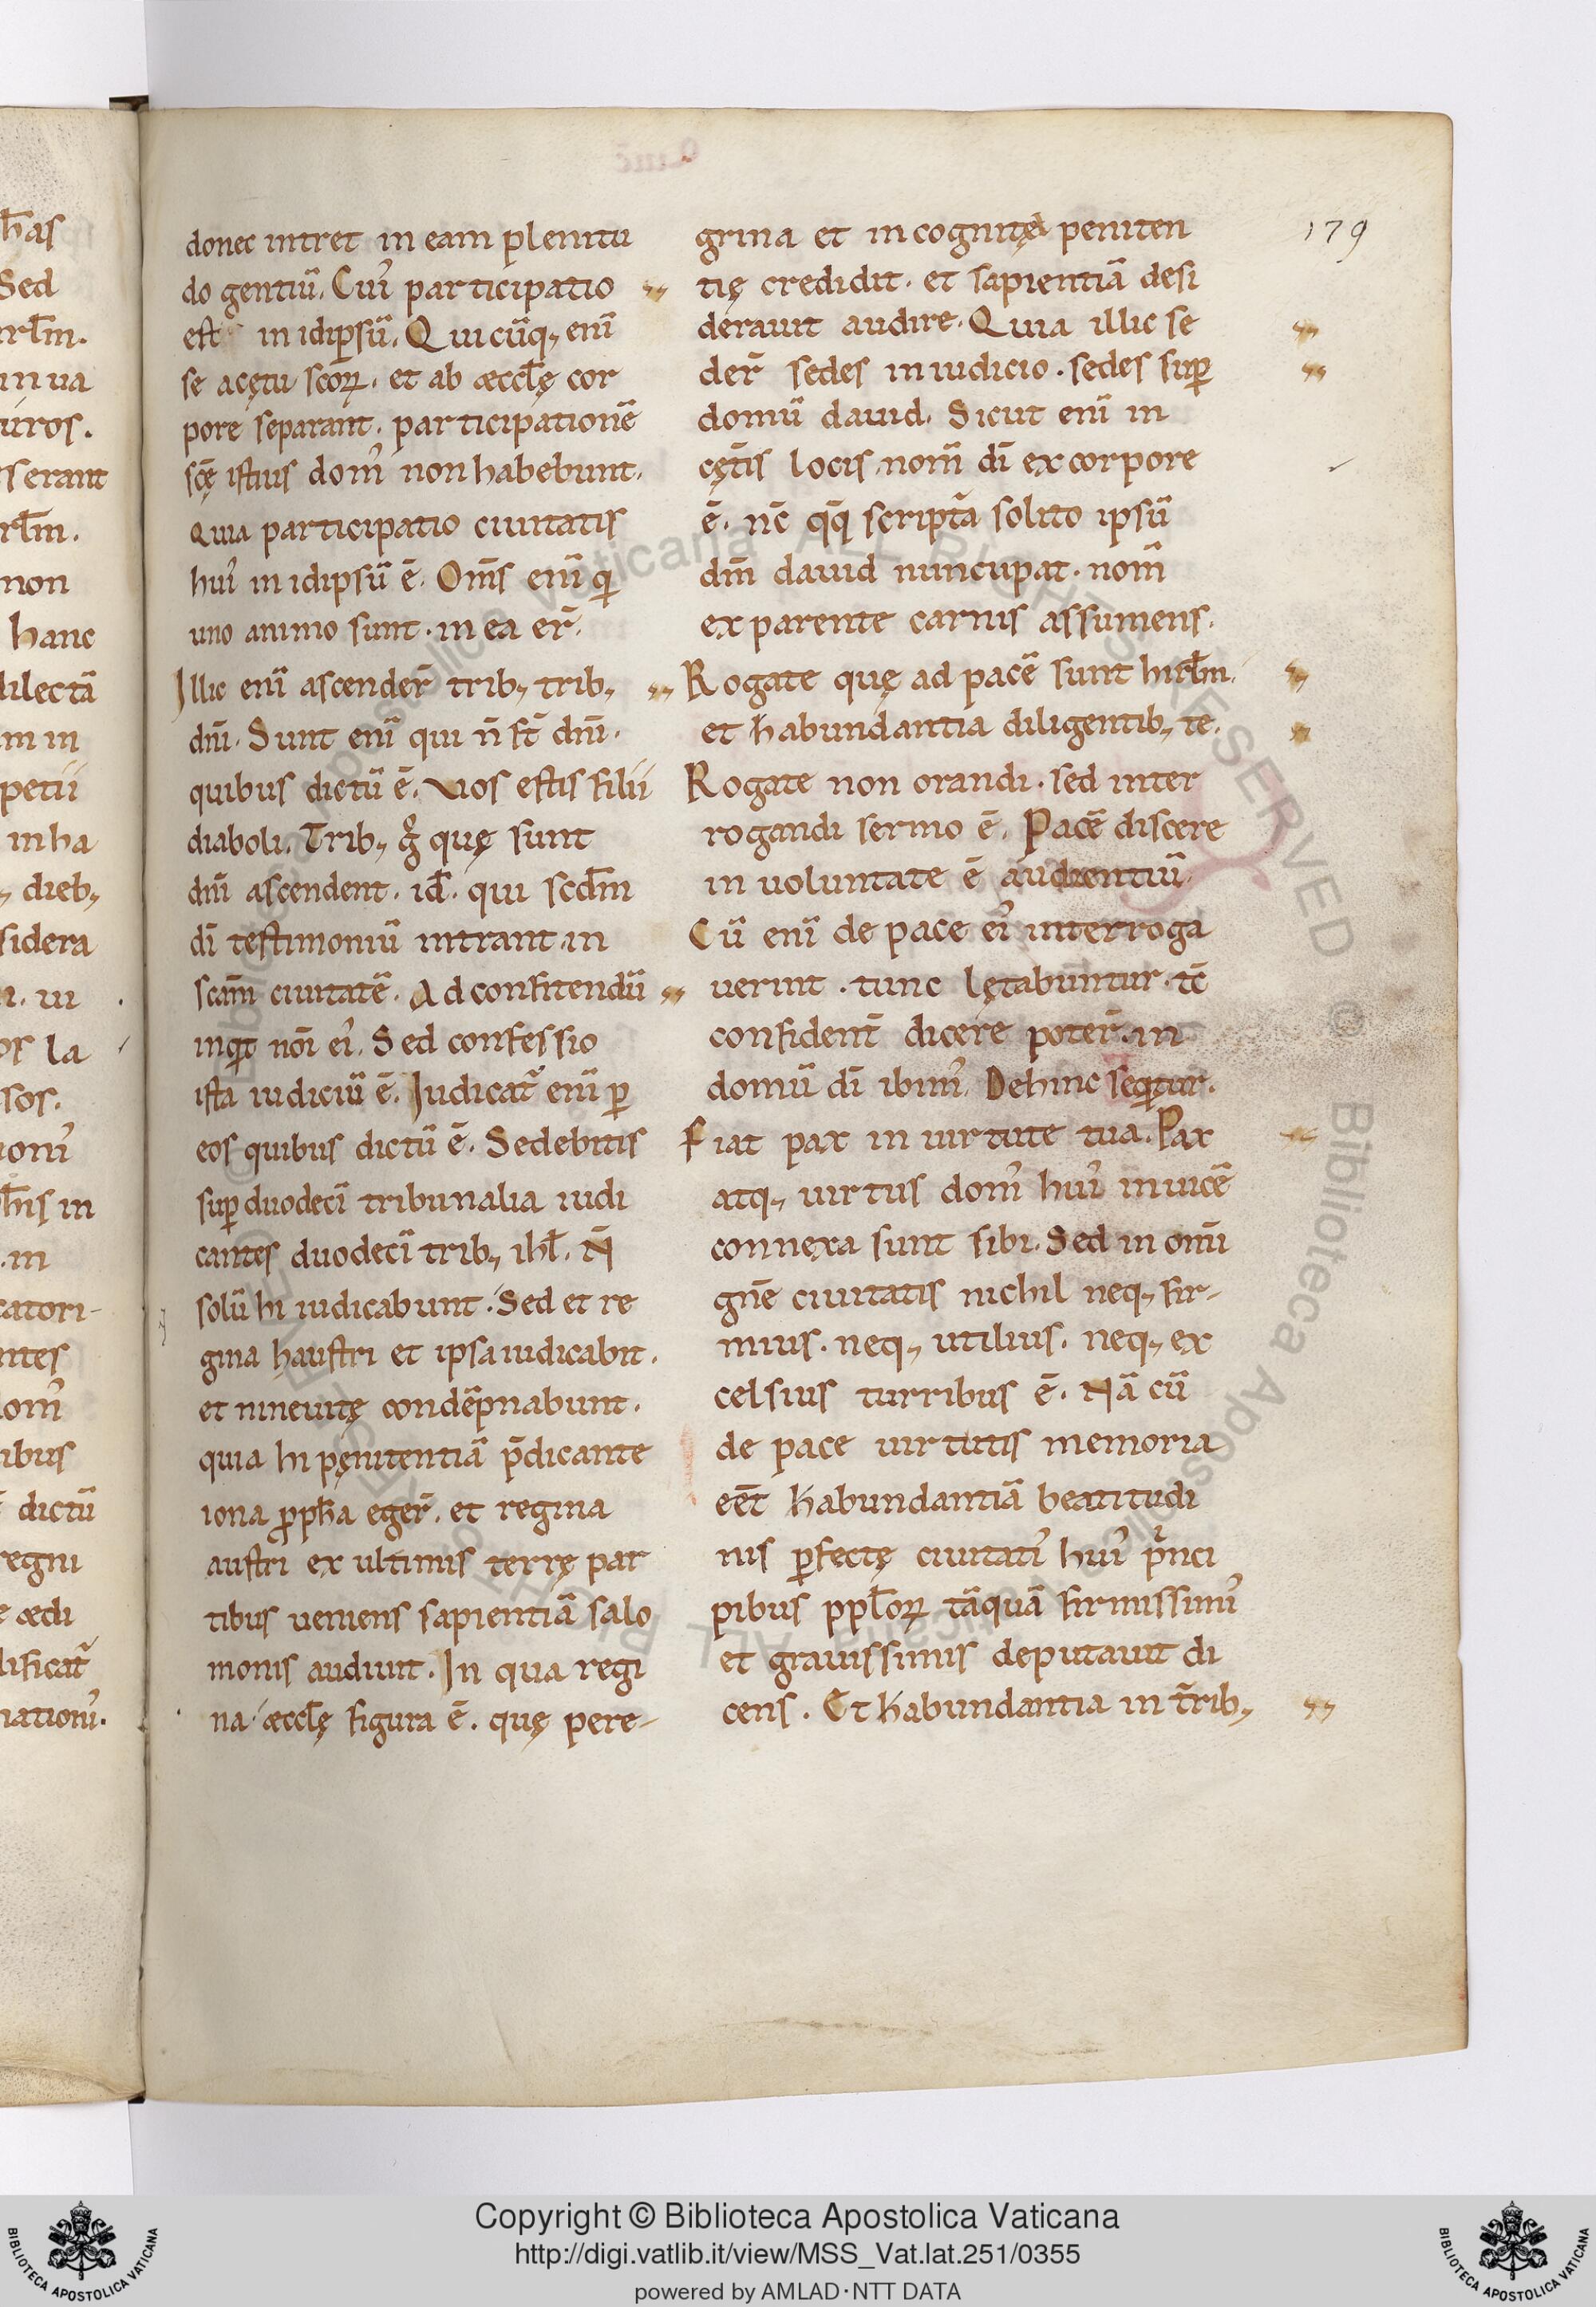 donec intret in eam plenitu
do gentiũ. Cuiꝰ participatio
est in idip̃sũ. Quicũq; enĩ
se a cętu scõꝝ. et ab æccłę cor
pore separant. participationẽ
scę̃ istius domꝰ non habebunt.
Quia participatio ciuitatis
huiꝰ in idipsũ ẽ. Om̃s enĩ qi
uno animo sunt. in ea er̃.
Illic enĩ ascender̃ trib; trib;
dñi. Sunt enĩ qui ñ st̃ dñi.
quibus dictũ ẽ. Vos estis filii
diaboli. Trib; g̊ quę sunt
dñi ascendent. id̃. qui scdm̃
dĩ testimoniũ intrant in
scãm ciuitatẽ. Ad confitendũ
inqͥt nõi eiꝰ. Sed confessio
ista iudiciũ ẽ. Iudicat᷑ enĩ ꝑ
eos quibus dictũ ẽ. Sedebitis
suꝑ duodecĩ tribunalia iudi
cantes duodecĩ trib; ihł. Ñ
solũ hi iudicabunt. Sed et re
gina haustri et ipsa iudicabit.
et nineuitę condẽpnabunt.
quia hi pęnitentiã p̃dicante
iona ꝓpħa eger̃. et regina
austri ex ultimis terrę par
tibus ueniens sapientiã salo
monis audiuit. In qua regi
na æccłę figura ẽ. quę pere-
grina et incognitę peniten
tię credidit. et sapientiã desi
derauit audire. Quia illic se
der̃ sedes in iudicio. sedes suꝑ
domũ dauid. Sicut enĩ in
cęt̃is locis nom̃ dĩ ex corpore
ẽ. nc̃ qq̃ scriptã solito ipsũ
dm̃ dauid nuncupat. nom̃
ex parente carnis assumens.
Rogate quę ad pacẽ sunt hirłm.
et habundantia diligentib; te.
Rogate non orandi. sed inter
rogandi sermo ẽ. Pacẽ discere
in uoluntate ẽ audientiũ.
Cũ enĩ de pace eiꝰ interroga
uerint. tunc lętabuntur. tc̃
confident̃ dicere poter̃. in
domũ dĩ ibimꝰ. Dehinc seqͥtur.
Fiat pax in uirtute tua. Pax
atq; uirtus domꝰ huiꝰ inuicẽ
connexa sunt sibi. Sed in omĩ
gñe ciuitatis nichil neq; fir-
mius. neq; utilius. neq; ex
celsius turribus ẽ. Nã cũ
de pace uirtutis memoria
eẽt habundantiã beatitudi
nis ꝑfectę ciuitatiꝰ huiꝰ pͥnci
pibus ppłoꝝ tãquã firmissimiꝰ
et grauissimis deputauit di
cens. Et habundantia in t̃rib;
179
Copyright © Biblioteca Apostolica Vaticana
http://digi.vatlib.it/view/MSS_Vat.lat.251/0355
powered by AMLAD·NTT DATA